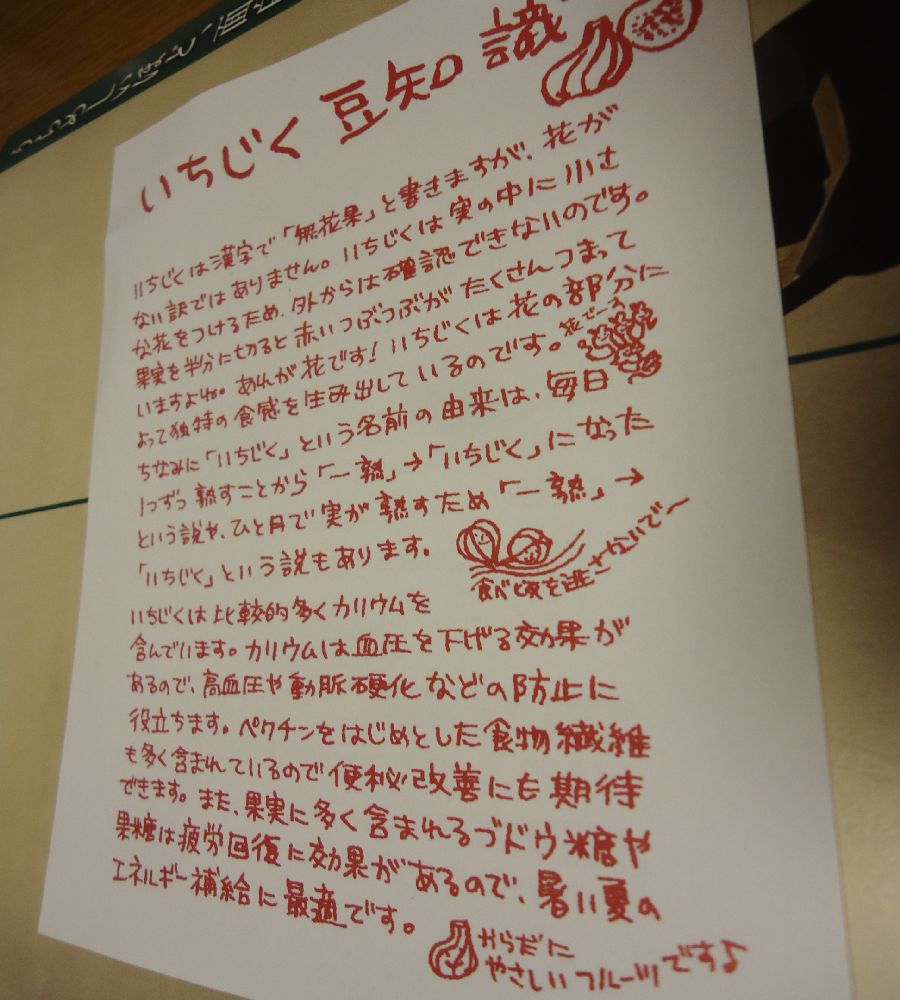 いちじく 豆知識
いちじくは漢字で「無花果」と書きますが、花が
ない訳ではありません。いちじくは実の中に小さ
な花をつけるため、外からは確認できないのです。
果実を半分に切ると赤いつぶつぶがたくさんつまって
いますよね。あれが花です！いちじくは花の部分に
よって独特の食感を生み出しているのです。
花でーす
ちなみに「いちじく」という名前の由来は、毎日
1つずつ熟すことから「一熟」→「いちじく」になった
という説や、ひと月で実が熟すため「一熟」→
「いちじく」という説もあります。
食べ頃を逃さないで〜
いちじくは比較的多くカリウムを
含んでいます。カリウムは血圧を下げる効果が
あるので、高血圧や動脈硬化などの防止に
役立ちます。ペクチンをはじめとした食物繊維
も多く含まれているので便秘改善にも期待
できます。また、果実に多く含まれるブドウ糖や
果糖は疲労回復に効果があるので、暑い夏の
エネルギー補給に最適です。
からだに
やさしいフルーツです♪